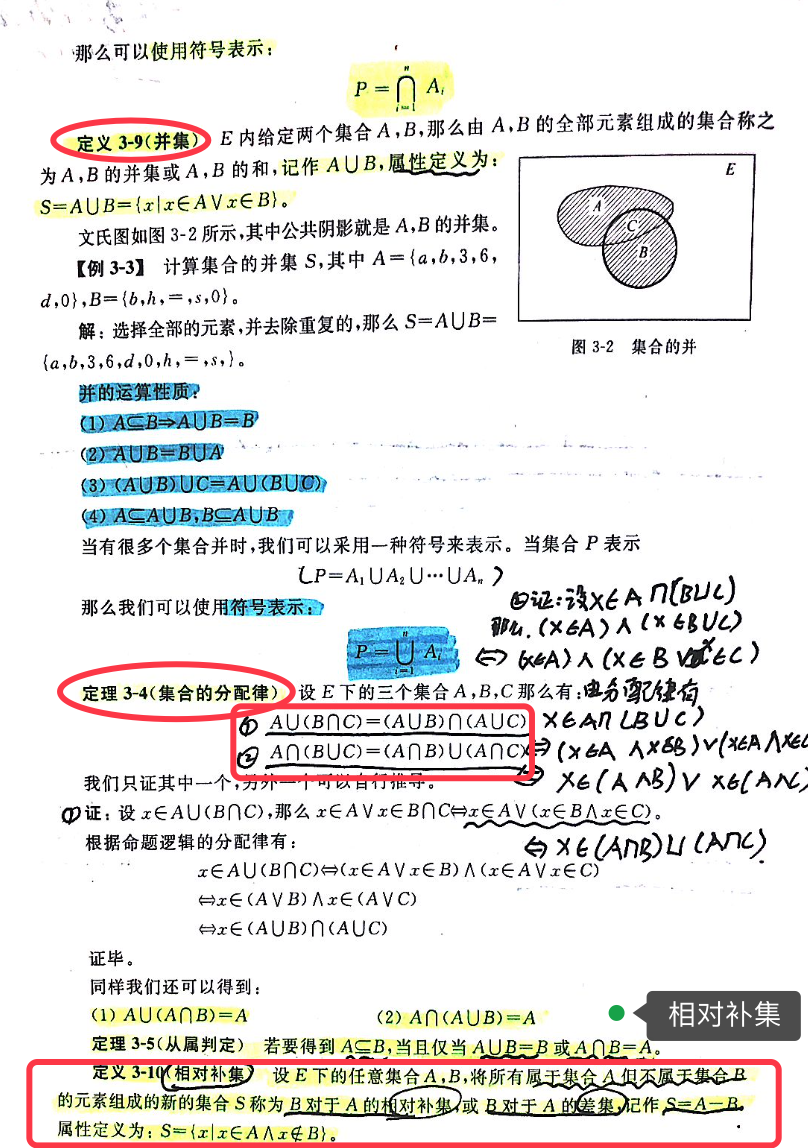 那么可以使用符号表示：
P=⋂ⁿᵢ₌₁ Aᵢ
定义 3-9(并集) E内给定两个集合A,B,那么由A,B的全部元素组成的集合称之
为A,B的并集或A,B的和,记作A∪B,属性定义为：
S=A∪B={x|x∈A∨x∈B}。
E
A
C
B
文氏图如图3-2所示,其中公共阴影就是A,B的并集。
【例 3-3】 计算集合的并集S,其中A={a,b,3,6,
d,0},B={b,h,=,s,0}。
解：选择全部的元素,并去除重复的,那么S=A∪B=
{a,b,3,6,d,0,h,=,s,}。
图 3-2 集合的并
并的运算性质：
(1) A⊆B⇒A∪B=B
(2) A∪B=B∪A
(3) (A∪B)∪C=A∪(B∪C)
(4) A⊆A∪B,B⊆A∪B
当有很多个集合并时,我们可以采用一种符号来表示。当集合P表示
(P=A₁∪A₂∪⋯∪Aₙ)
那么我们可以使用符号表示：
P=⋃ⁿᵢ₌₁ Aᵢ
②证:设X∈A∩(B∪C)
那么.(X∈A)∧(X∈B∪C)
⇔(X∈A)∧(X∈B∨X∈C)
由分配律有
X∈A∩(B∪C)
⇔(X∈A∧X∈B)∨(X∈A∧X∈C
⇔X∈(A∧B)∨X∈(A∧C)
⇔X∈(A∩B)∪(A∩C).
定理 3-4(集合的分配律) 设E下的三个集合A,B,C那么有：
① A∪(B∩C)=(A∪B)∩(A∪C)
② A∩(B∪C)=(A∩B)∪(A∩C)
我们只证其中一个,另外一个可以自行推导。
①证：设x∈A∪(B∩C),那么x∈A∨x∈B∩C⇔x∈A∨(x∈B∧x∈C)。
根据命题逻辑的分配律有：
x∈A∪(B∩C)⇔(x∈A∨x∈B)∧(x∈A∨x∈C)
⇔x∈(A∨B)∧x∈(A∨C)
⇔x∈(A∪B)∩(A∪C)
证毕。
同样我们还可以得到：
(1) A∪(A∩B)=A (2) A∩(A∪B)=A
相对补集
定理 3-5(从属判定) 若要得到A⊆B,当且仅当A∪B=B或A∩B=A。
定义 3-10(相对补集) 设E下的任意集合A,B,将所有属于集合A但不属于集合B
的元素组成的新的集合S称为B对于A的相对补集,或B对于A的差集,记作S=A−B,
属性定义为：S={x|x∈A∧x∉B}。